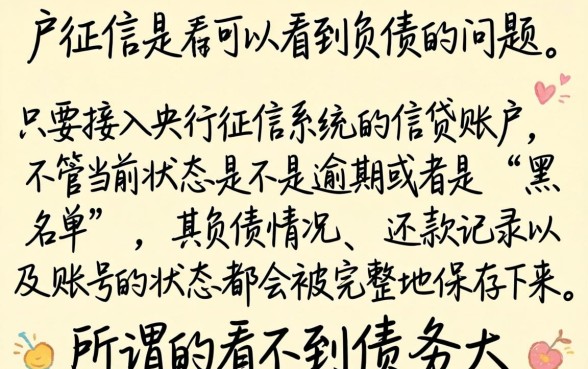 户征信是看可以看到负债的问题。
只要接入央行征信系统的信贷账户，
不管当前状态是不是逾期或者是“黑
名单”，其负债情况、还款记录以
及账号的状态都会被完整地保存下来。
所谓的看不到债务大